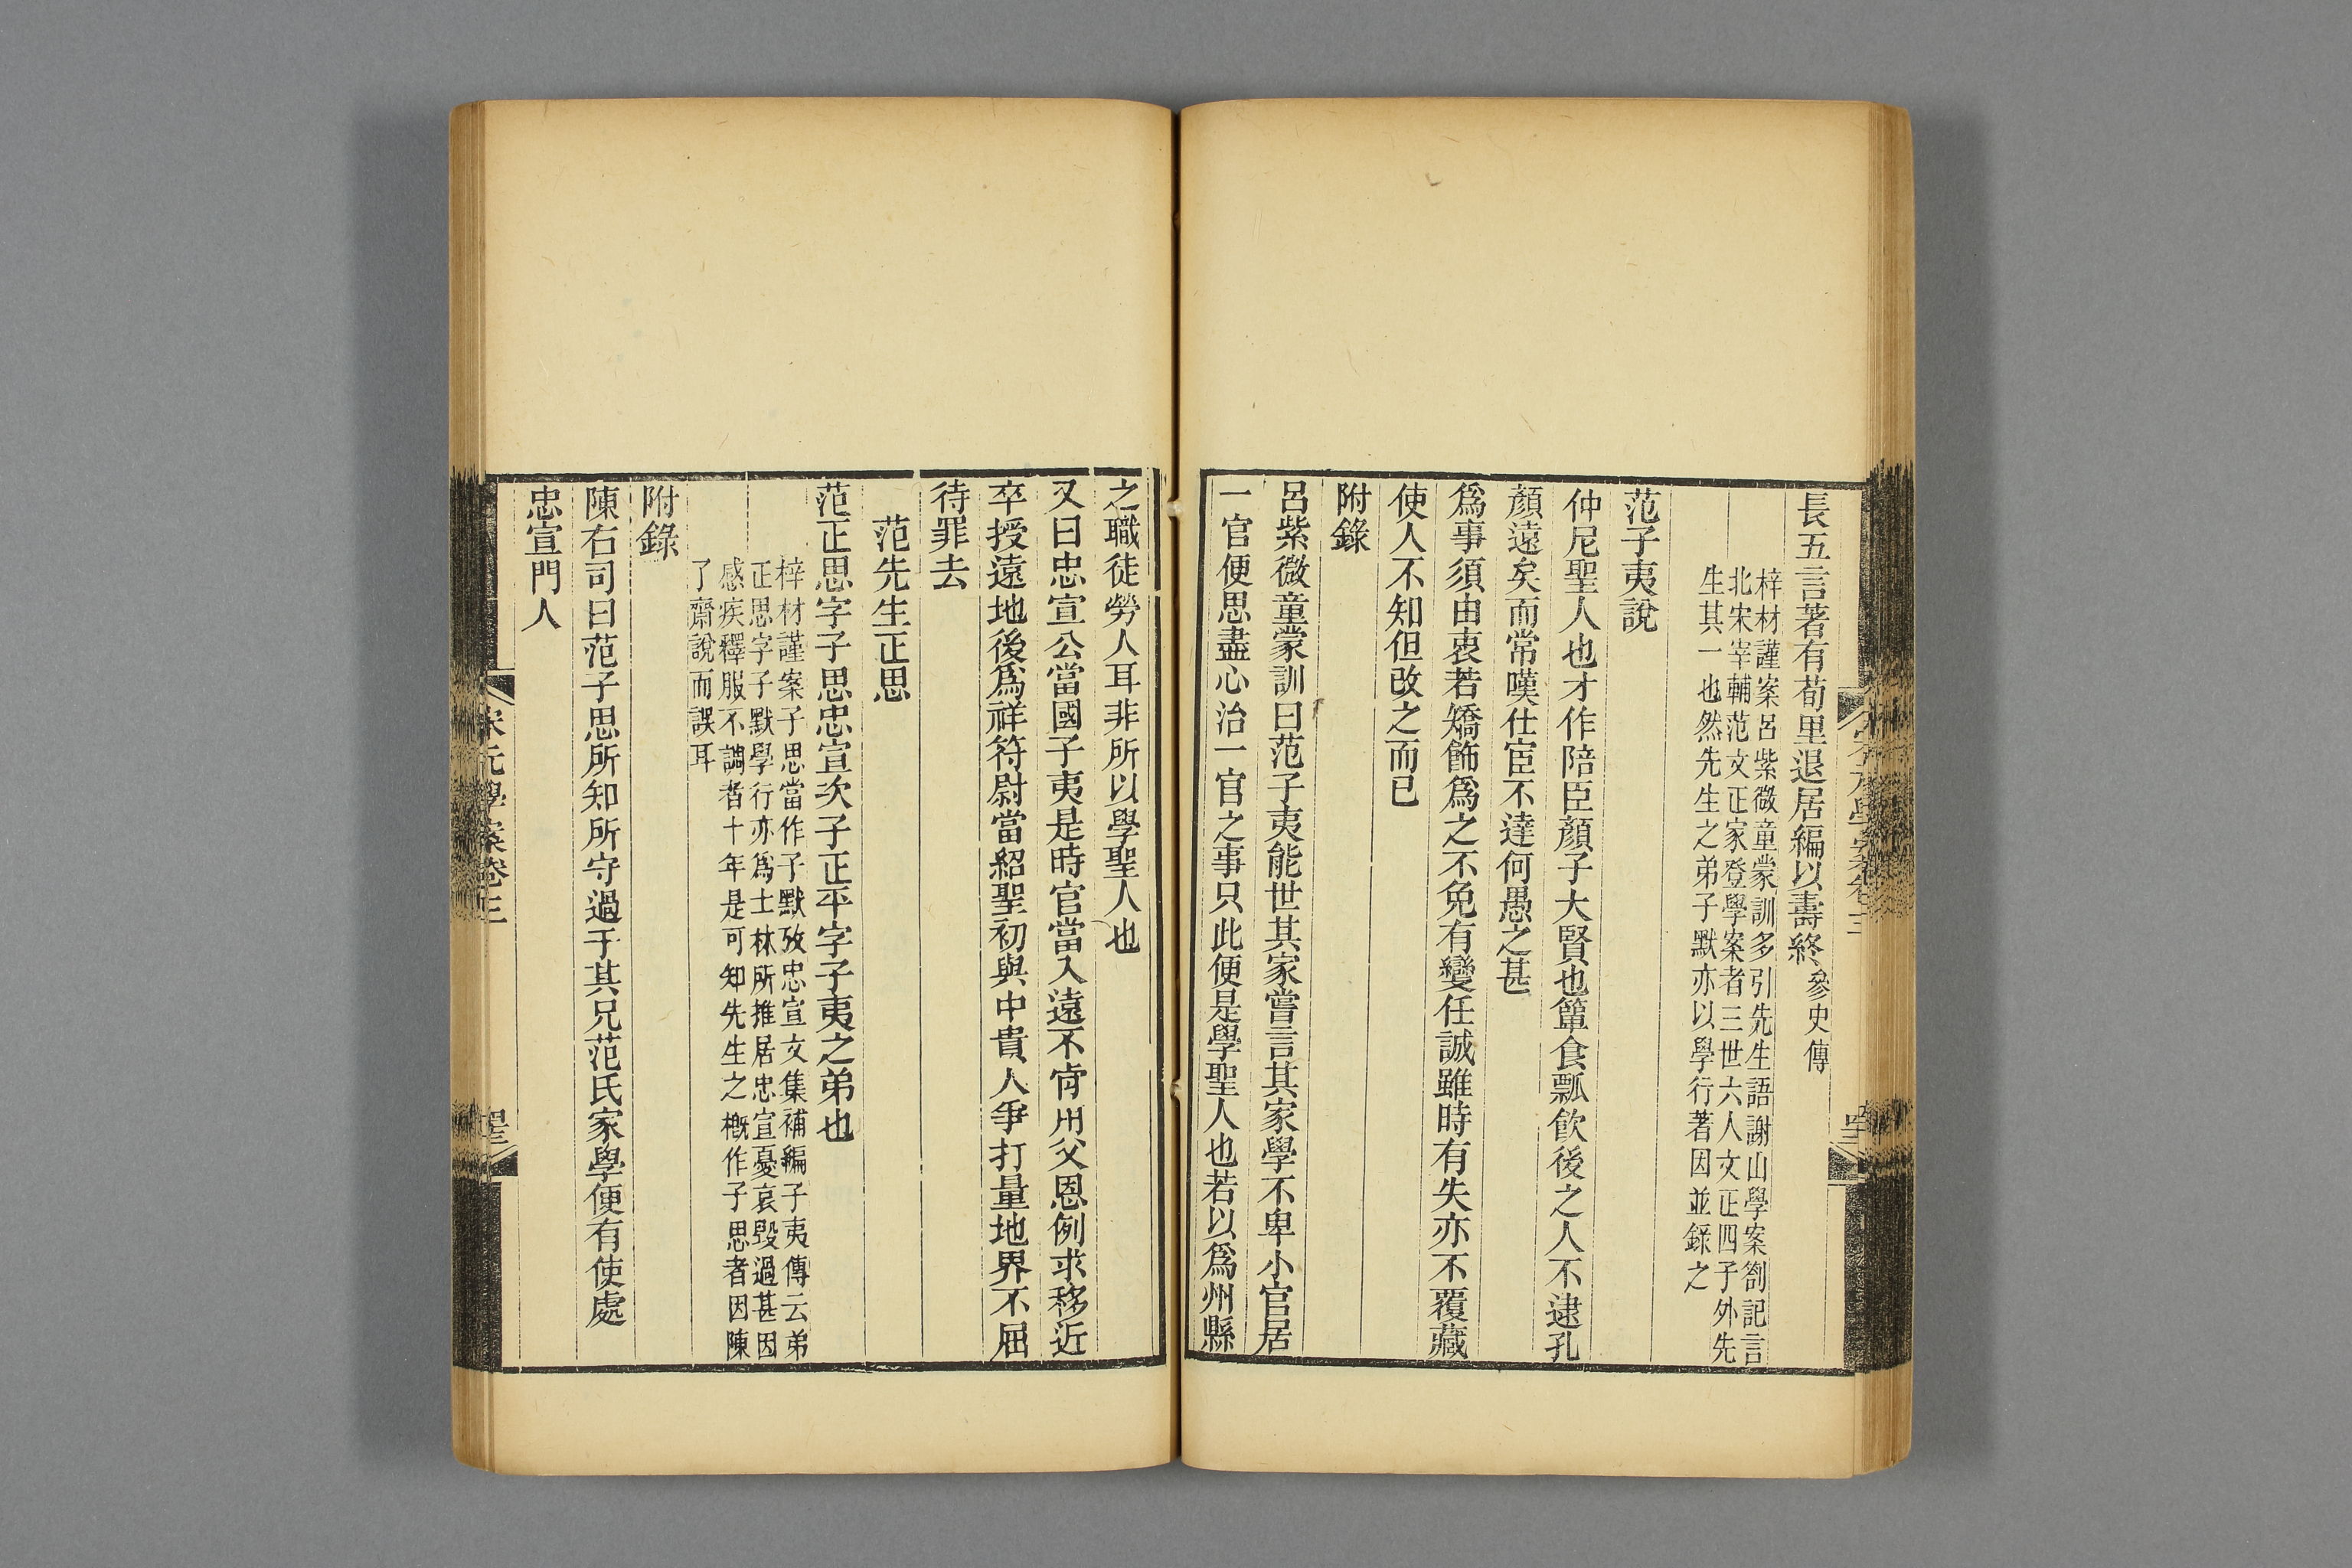 長五言著有荀里退居編以壽終參史傳
梓材謹案呂紫微童蒙訓多引先生語謝山學案劄記言
北宋宰輔范文正家登學案者三世六人文正四子外先
生其一也然先生之弟子默亦以學行著因並錄之
范子夷說
仲尼聖人也才作陪臣顏子大賢也簞食瓢飲後之人不逮孔
顏遠矣而常嘆仕宦不達何愚之甚
爲事須由衷若矯飾爲之不免有變任誠雖時有失亦不覆藏
使人不知但改之而已
附錄
呂紫微童蒙訓曰范子夷能世其家嘗言其家學不卑小官居
一官便思盡心治一官之事只此便是學聖人也若以爲州縣
之職徒勞人耳非所以學聖人也
又曰忠宣公當國子夷是時官當入遠不肯用父恩例求移近
卒授遠地後爲祥符尉當紹聖初與中貴人爭打量地界不屈
待罪去
范先生正思
范正思字子思忠宣次子正平字子夷之弟也
梓材謹案子思當作子默攷忠宣文集補編子夷傳云弟
正思字子默學行亦爲士林所推居忠宣憂哀毀過甚因
感疾釋服不調者十年是可知先生之槪作子思者因陳
了齋說而誤耳
附錄
陳右司曰范子思所知所守過于其兄范氏家學便有使處
忠宣門人
宋元學案卷三